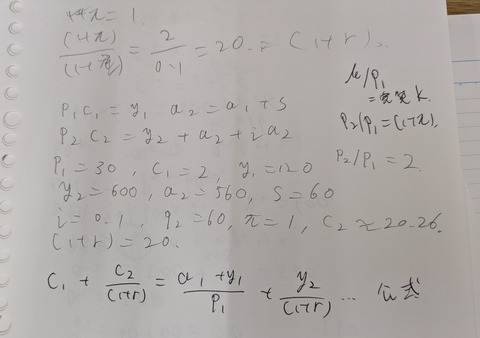 1+π = 1.
(1+π)/(1+π) = 2/0.1 = 20. = (1+r)
P₁C₁ = y₁ a₂ = a₁ + S
P₂C₂ = y₂ + a₂ + ia₂
P₁ = 30, C₁ = 2, y₁ = 120
y₂ = 600, a₂ = 560, S = 60
i = 0.1, q₂ = 60, π = 1, C₂ ≈ 20.26.
(1+r) = 20.
/P₁ = K.
P₂/P₁ = (1+π).
P₂/P₁ = 2.
C₁ + C₂/(1+r) = (a₁+y₁)/P₁ + y₂/(1+r) ... 公式